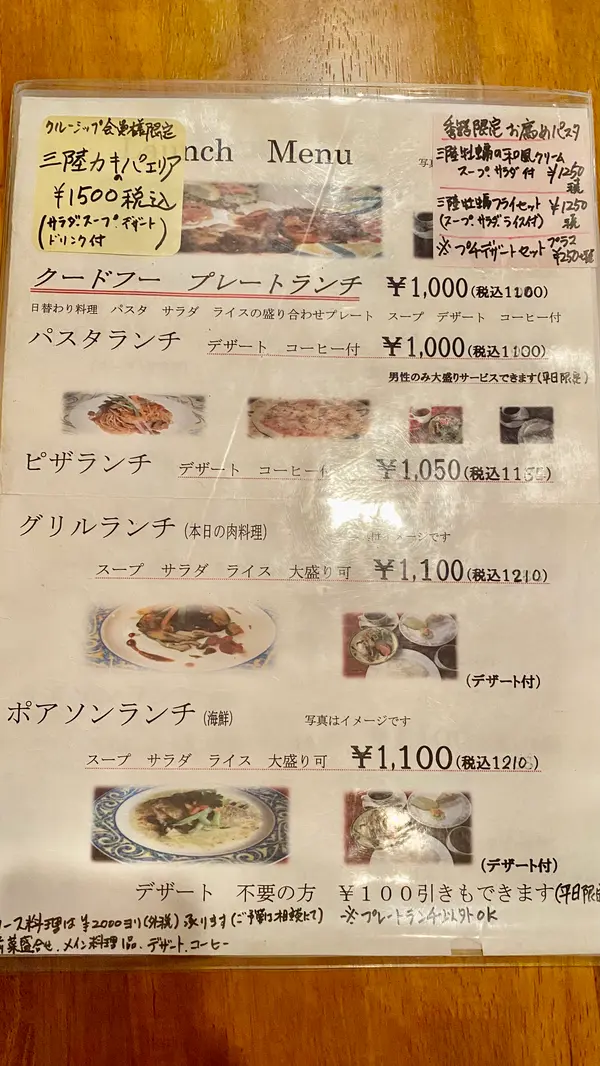 クルーシップ会員様限定
三陸カキのパエリア
¥1500税込
(サラダ.スープ.デザート
ドリンク付)
unch Menu
写真
限定 お薦めパスタ
三陸牡蠣の和風クリーム
スープ.サラダ付 ¥1250税
三陸牡蠣フライセット ¥1250税
(スープ.サラダ.ライス付)
※プチデザートセット プラス¥250+税
クードフー プレートランチ ¥1,000(税込1100)
日替わり料理 パスタ サラダ ライスの盛り合わせプレート スープ デザート コーヒー付
パスタランチ デザート コーヒー付 ¥1,000(税込1100)
男性のみ大盛りサービスできます(平日限定)
ピザランチ デザート コーヒー付 ¥1,050(税込1155)
グリルランチ(本日の肉料理)
はイメージです
スープ サラダ ライス 大盛り可 ¥1,100(税込1210)
(デザート付)
ポアソンランチ(海鮮) 写真はイメージです
スープ サラダ ライス 大盛り可 ¥1,100(税込1210)
(デザート付)
デザート 不要の方 ¥100引きもできます(平日限定
ース料理は¥2000ヨリ(外税)承ります(ご予算は相談にて) ※プレートランチ以外OK
前菜盛合せ.メイン料理1品.デザート.コーヒー